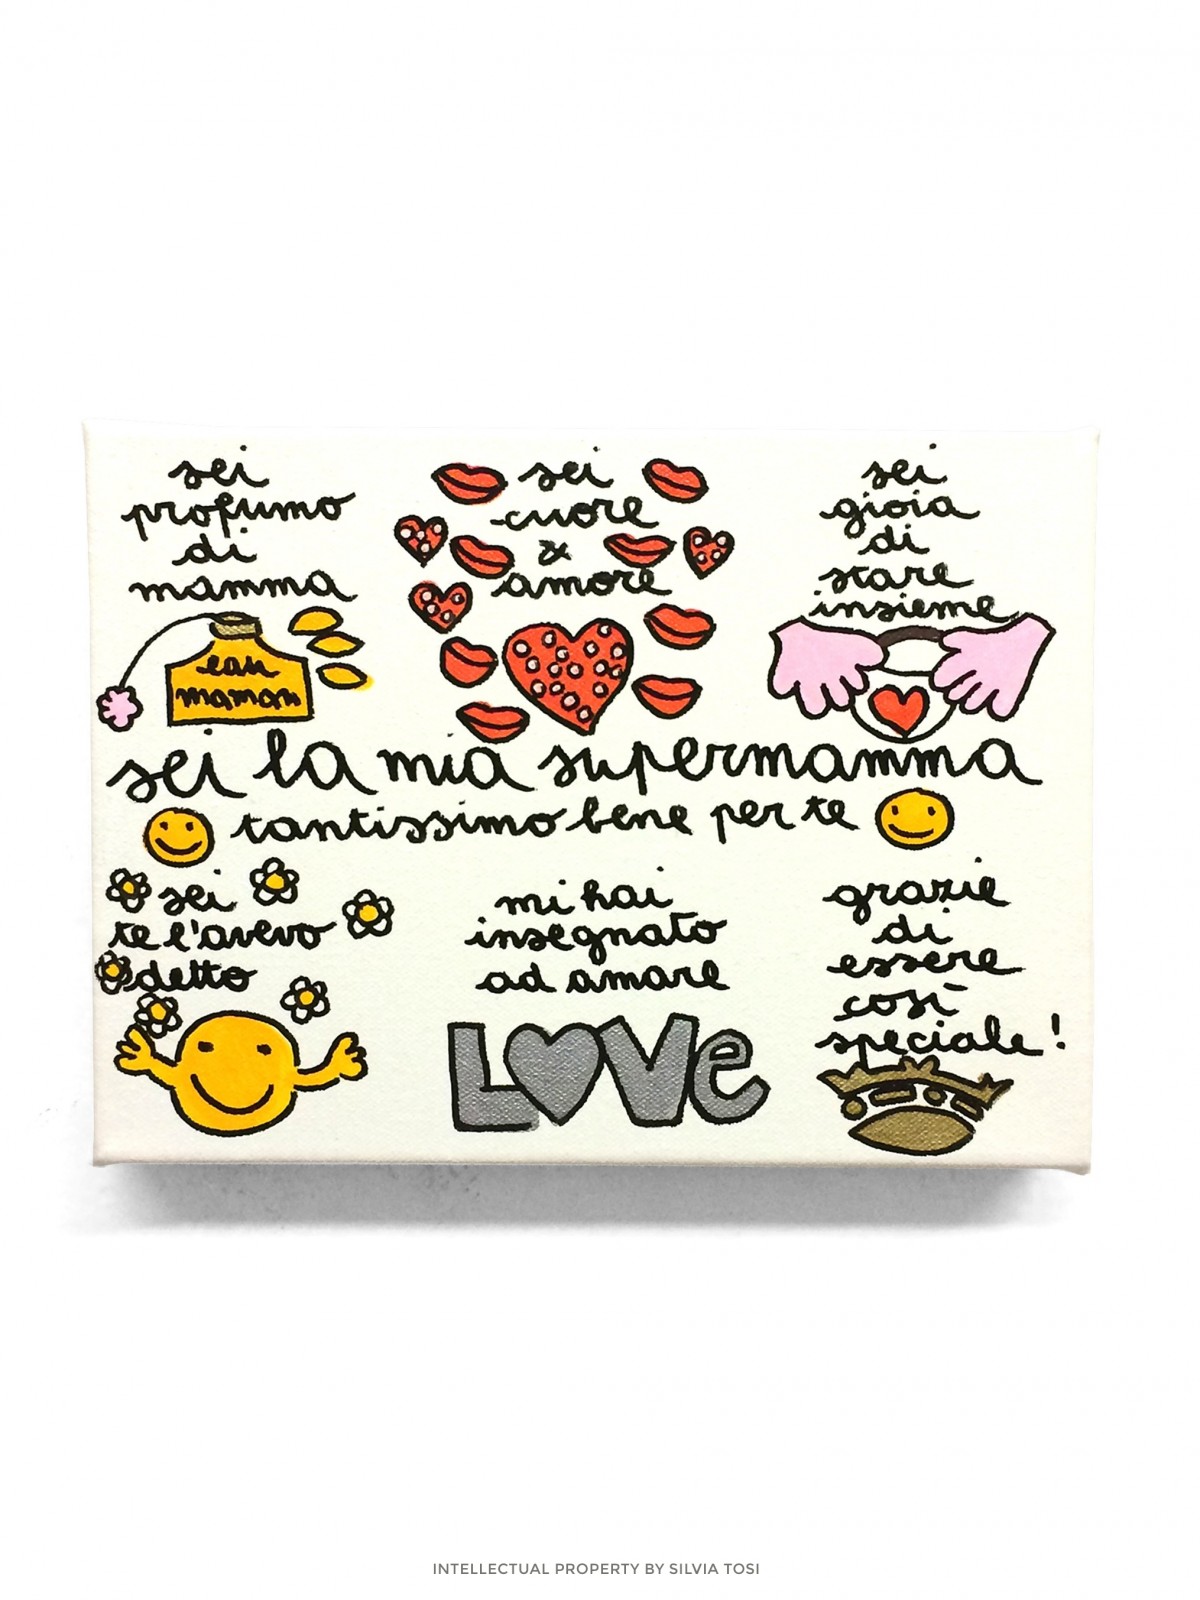 sei
profumo
di
mamma
eau
maman
sei
cuore
&
amore
sei
gioia
di
stare
insieme
sei la mia supermamma
tantissimo bene per te
sei
te l'avevo
detto
mi hai
insegnato
ad amare
LOVe
grazie
di
essere
così
speciale!
INTELLECTUAL PROPERTY BY SILVIA TOSI